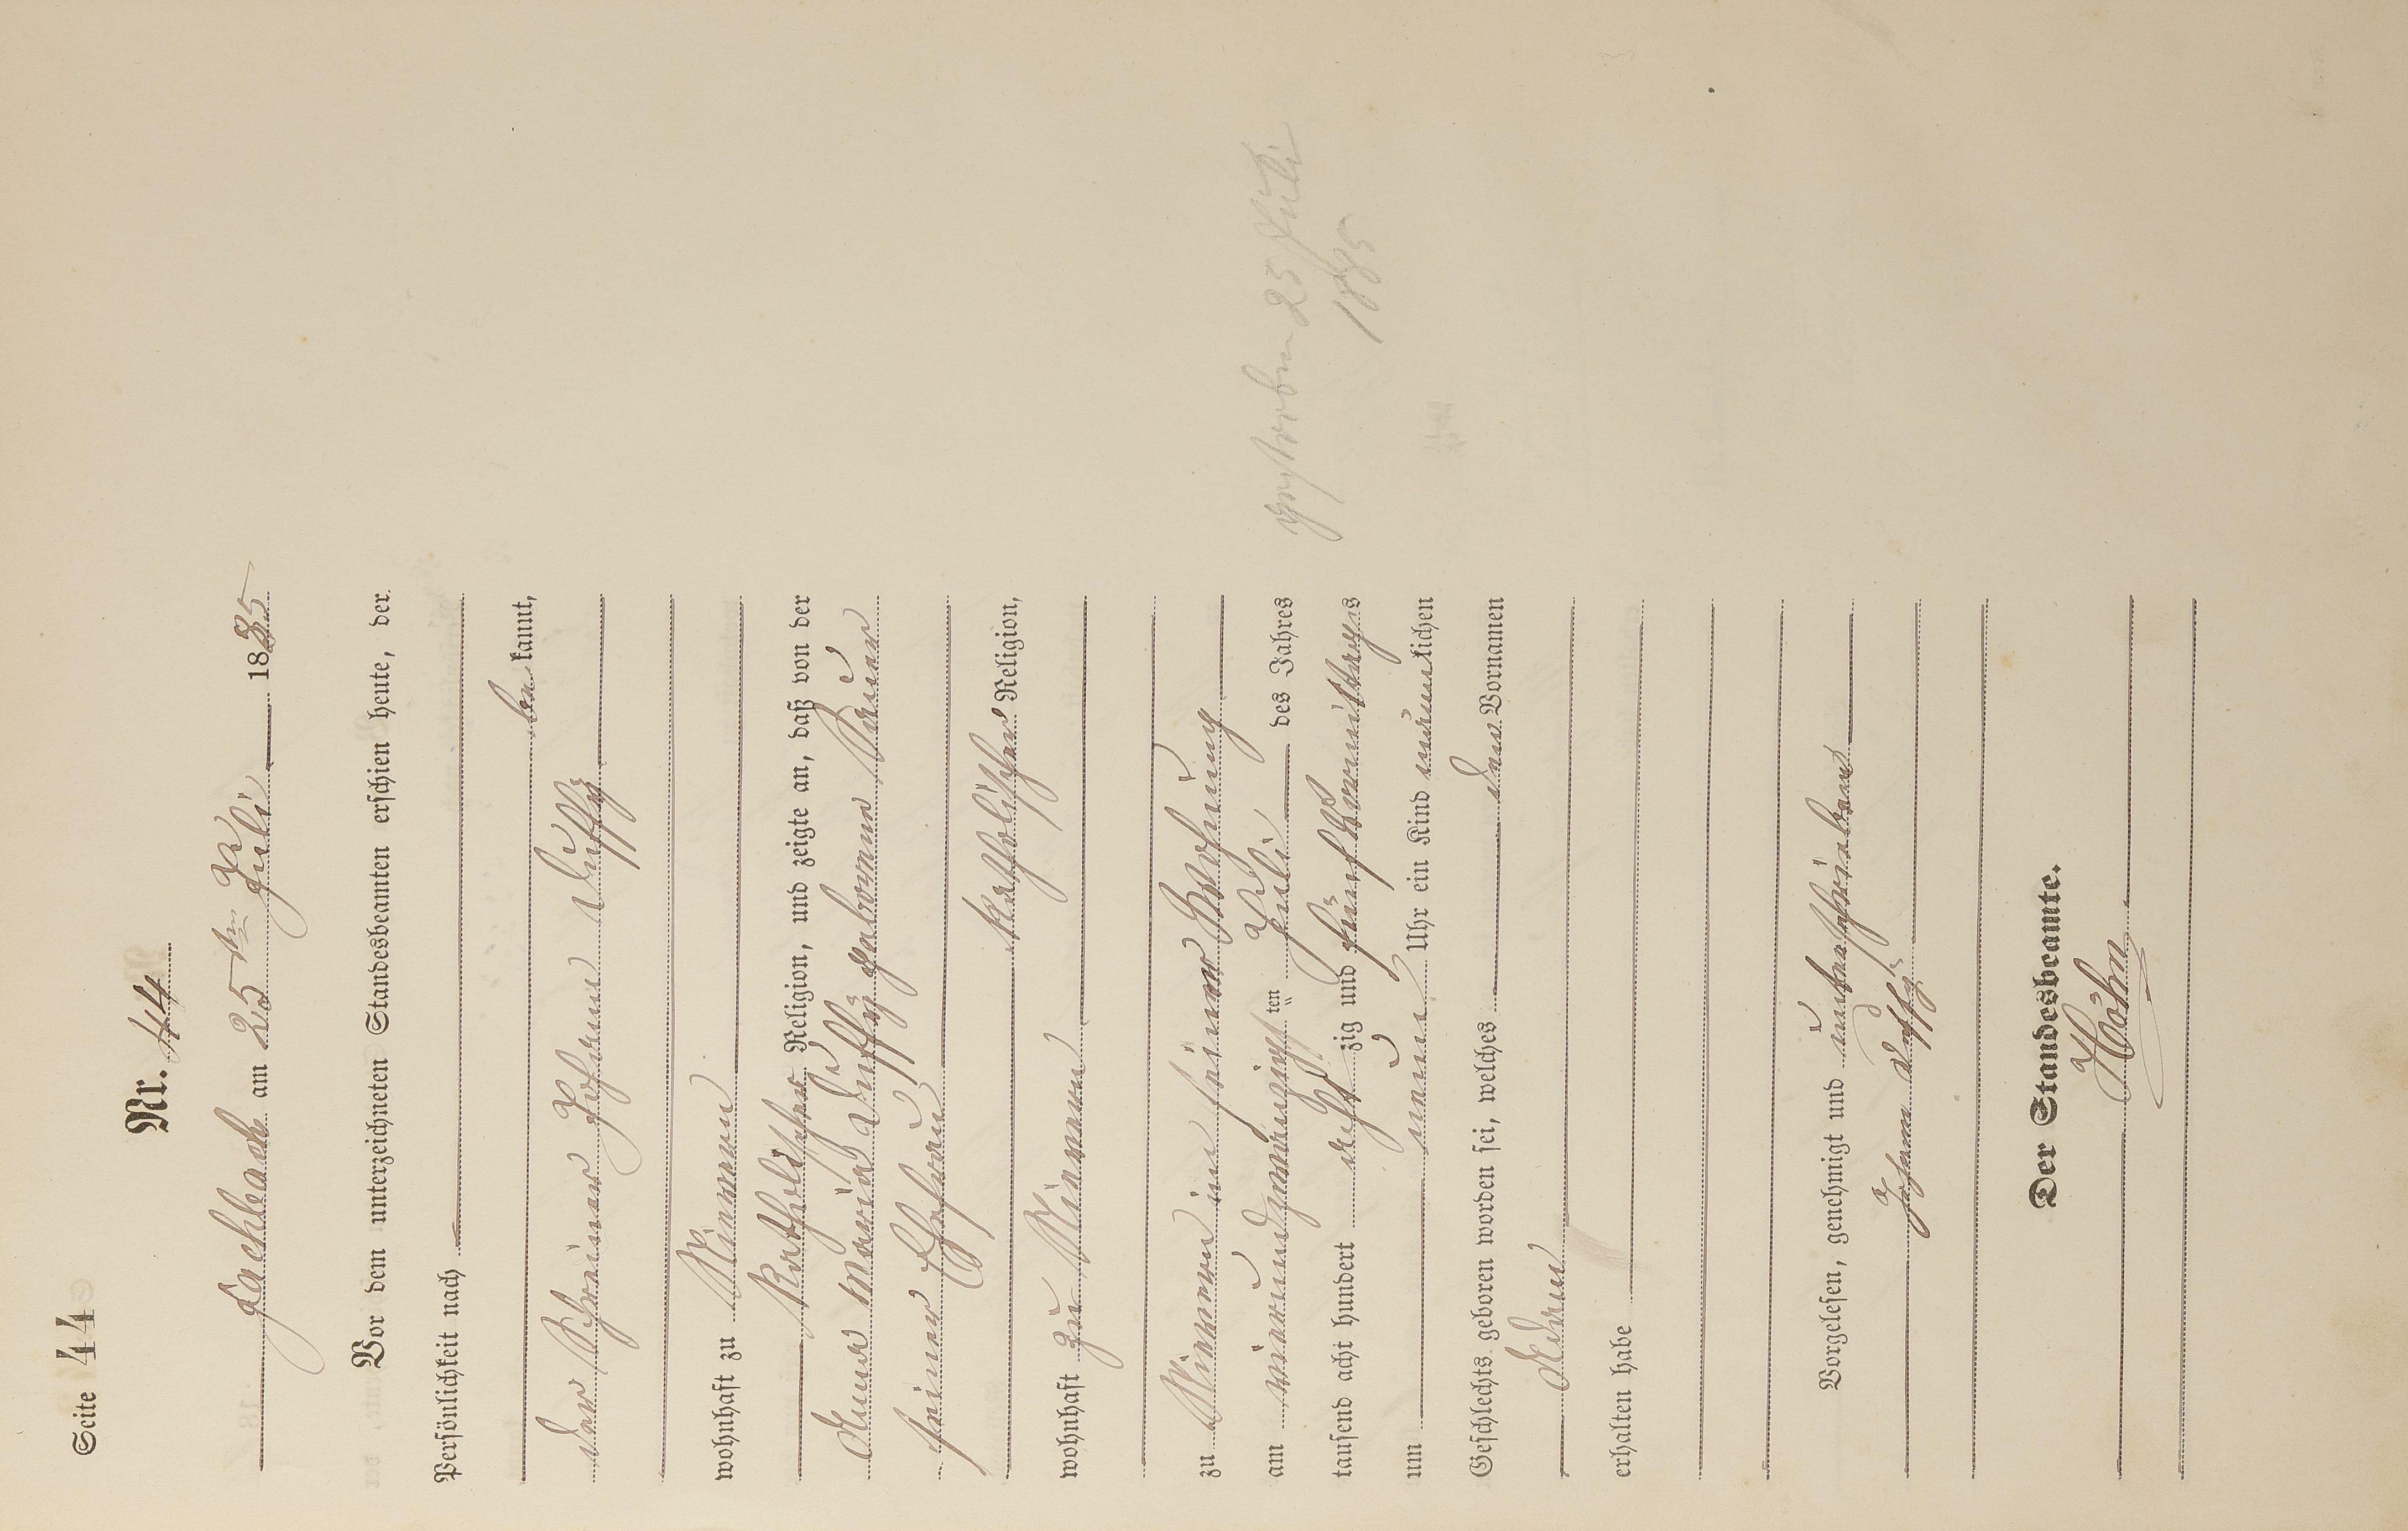 Seite 44
Nr. 44
Fachbach am 25ten Juli 1885
Vor dem unterzeichneten Standesbeamten erschien heute, der
Persönlichkeit nach
be kannt,
der Schreiner Johann Düffÿ
wohnhaft zu Miemen
katholischer Religion, und zeigte an, daß von der
Anna Maria Düffÿ geborenen Bauer
seiner Ehefrau
katholischer Religion,
wohnhaft zu Miemen
zu Miemen in seiner Wohnung
am vierundzwanzigsten Juli des Jahres
tausend acht hundert acht zig und fünf Vormittags
um neun Uhr ein Kind männlichen
Geschlechts geboren worden sei, welches den Vornamen
Adam
erhalten habe
gestorben 25 Juli
1885
Vorgelesen, genehmigt und unterschrieben
Johann Düffÿ
Der Standesbeamte.
Höhn